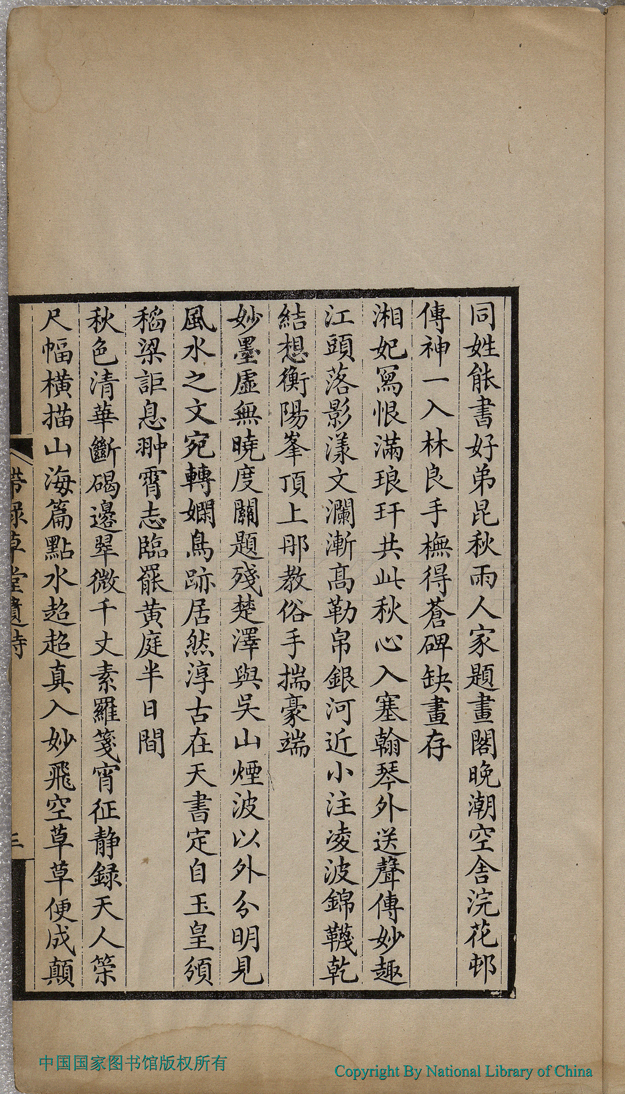 同姓能書好弟昆秋雨人家題畫閣晚潮空舍浣花邨
傳神一入林良手橅得蒼碑缺畫存
湘妃寫恨滿琅玕共此秋心入塞翰琴外送聲傳妙趣
江頭落影漾文瀾漸高勒帛銀河近小注凌波錦韈乾
結想衡陽峯頂上那教俗手揣豪端
妙墨虛無曉度關題殘楚澤與吳山煙波以外分明見
風水之文宛轉嫻鳥跡居然淳古在天書定自玉皇頒
稻粱詎息翀霄志臨罷黃庭半日間
秋色清華斷碣邊翠微千丈素羅箋宵征靜録天人策
尺幅橫描山海篇點水超超真入妙飛空草草便成顛
帶緑草堂遺詩
三
中国国家图书馆版权所有
Copyright By National Library of China